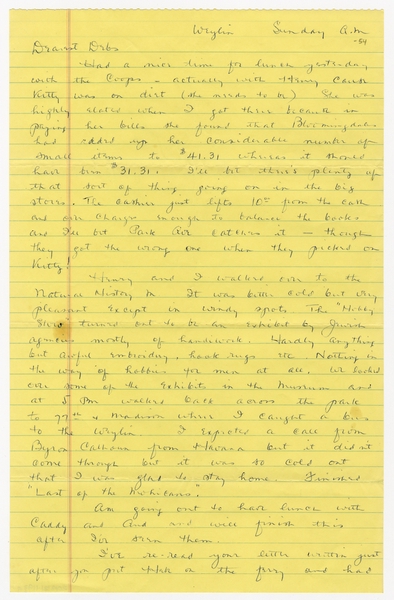 Weylin Sunday A.M
-54
Dearest Debs
Had a nice time for lunch yesterday
with the Coops - actually with Henry cause
Kitty was on diet (she needs to be) She was
highly elated when I got there because in
paying her bills she found that Bloomingdales
had added up her considerable number of
small items to $41.31 whereas it should
have been $31.31. I'll bet there's plenty of
that sort of thing going on in the big
stores. The cashier just lifts 10⁰⁰ from the cash
and over charges enough to balance the books
and I'll bet Park Ave catches it - though
they got the wrong one when they picked on
Kitty!
Henry and I walked over to the
Natural History M. It was bitter cold but very
pleasant except in windy spots. The "Hobby
Show" turned out to be an exhibit by Jewish
agencies mostly of handiwork. Hardly anything
but awful embroidery, hook rugs etc Nothing in
the way of hobbies for men at all. We looked
over some of the exhibits in the Museum and
at 5 PM walked back across the park
to 79th & Madison where I caught a bus
to the Weylin. I expected a call from
Byron Calhoun from Havana but it didn't
come through but it was so cold out
that I was glad to stay home. Finished
"Last of the Mohicans".
Am going out to have lunch with
Caddy and and will finish this
after I've seen them.
I've re-read your letter written just
after you put on the ferry and had